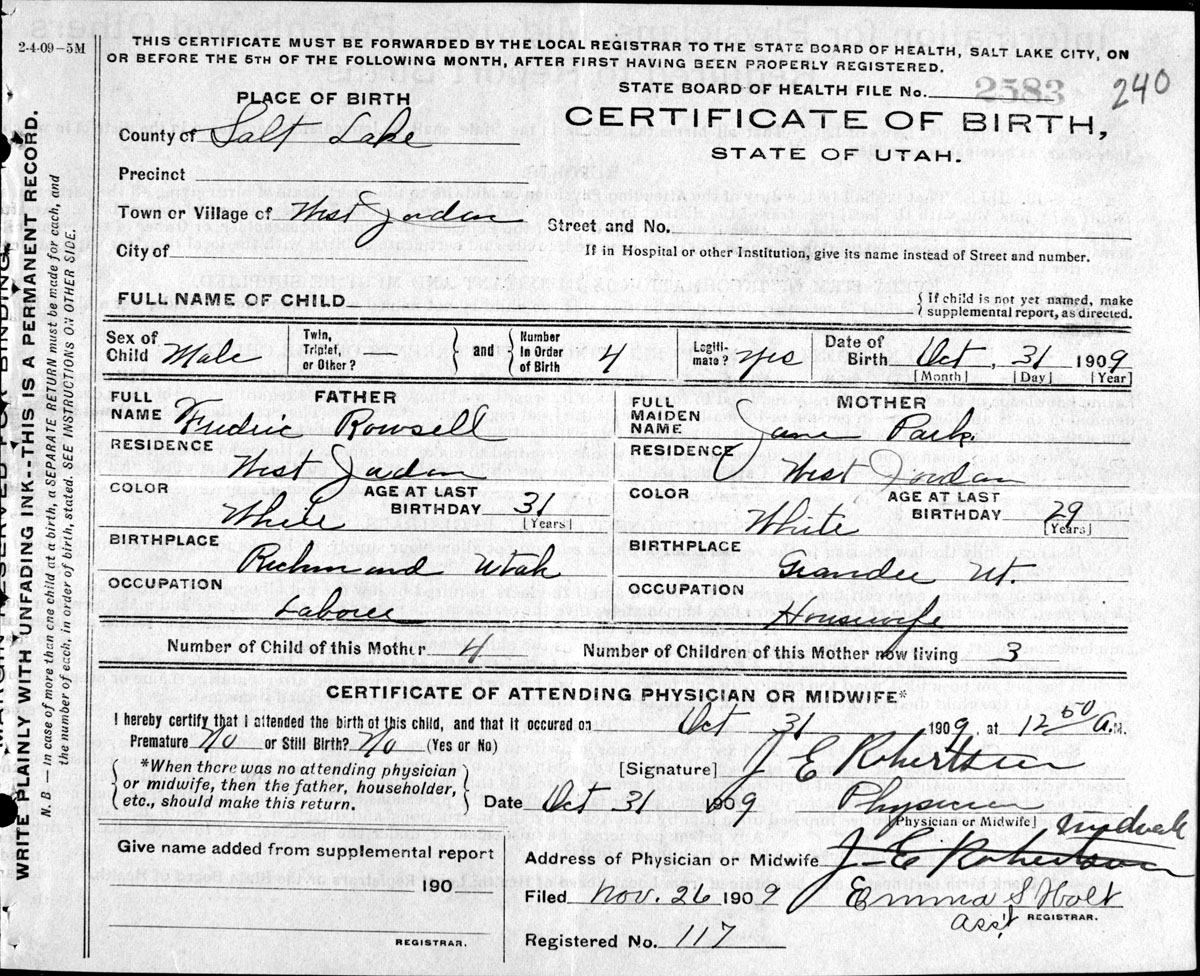 2-4-09-5M
THIS CERTIFICATE MUST BE FORWARDED BY THE LOCAL REGISTRAR TO THE STATE BOARD OF HEALTH, SALT LAKE CITY, ON
OR BEFORE THE 5TH OF THE FOLLOWING MONTH, AFTER FIRST HAVING BEEN PROPERLY REGISTERED.
STATE BOARD OF HEALTH FILE No. 2583 240
PLACE OF BIRTH
CERTIFICATE OF BIRTH,
STATE OF UTAH.
County of Salt Lake
Precinct
Town or Village of West Jordan
Street and No.
City of
If in Hospital or other Institution, give its name instead of Street and number.
FULL NAME OF CHILD
{ If child is not yet named, make
supplemental report, as directed.
Sex of Child Male Twin, Triplet, or Other? } and { Number In Order of Birth 4 Legiti- mate? Yes Date of Birth Oct, 31 1909
[Month] [Day] [Year]
FATHER
FULL NAME Fredric Rowsell
RESIDENCE
West Jordan
COLOR White AGE AT LAST BIRTHDAY 31
[Years]
BIRTHPLACE
Richmond Utah
OCCUPATION
Laborer
MOTHER
FULL MAIDEN NAME Jane Park
RESIDENCE
West Jordan
COLOR White AGE AT LAST BIRTHDAY 29
[Years]
BIRTHPLACE
Ut.
OCCUPATION
Housewife
Number of Child of this Mother 4 Number of Children of this Mother now living 3
CERTIFICATE OF ATTENDING PHYSICIAN OR MIDWIFE*
I hereby certify that I attended the birth of this child, and that it occured on Oct 31 1909, at 12 50 A.M.
Premature No or Still Birth? No (Yes or No)
{ *When there was no attending physician
or midwife, then the father, householder,
etc., should make this return. }
[Signature] J E Robertson
Date Oct 31 1909 Physician
[Physician or Midwife]
Give name added from supplemental report
190
REGISTRAR.
Address of Physician or Midwife J E Robertson
Filed Nov. 26 1909 Emma S Holt
Asst REGISTRAR.
Registered No. 117
MARGIN RESERVED FOR BINDING.
WRITE PLAINLY WITH UNFADING INK-THIS IS A PERMANENT RECORD.
N. B. — In case of more than one child at a birth, a SEPARATE RETURN must be made for each, and
the number of each, in order of birth, stated. SEE INSTRUCTIONS ON OTHER SIDE.